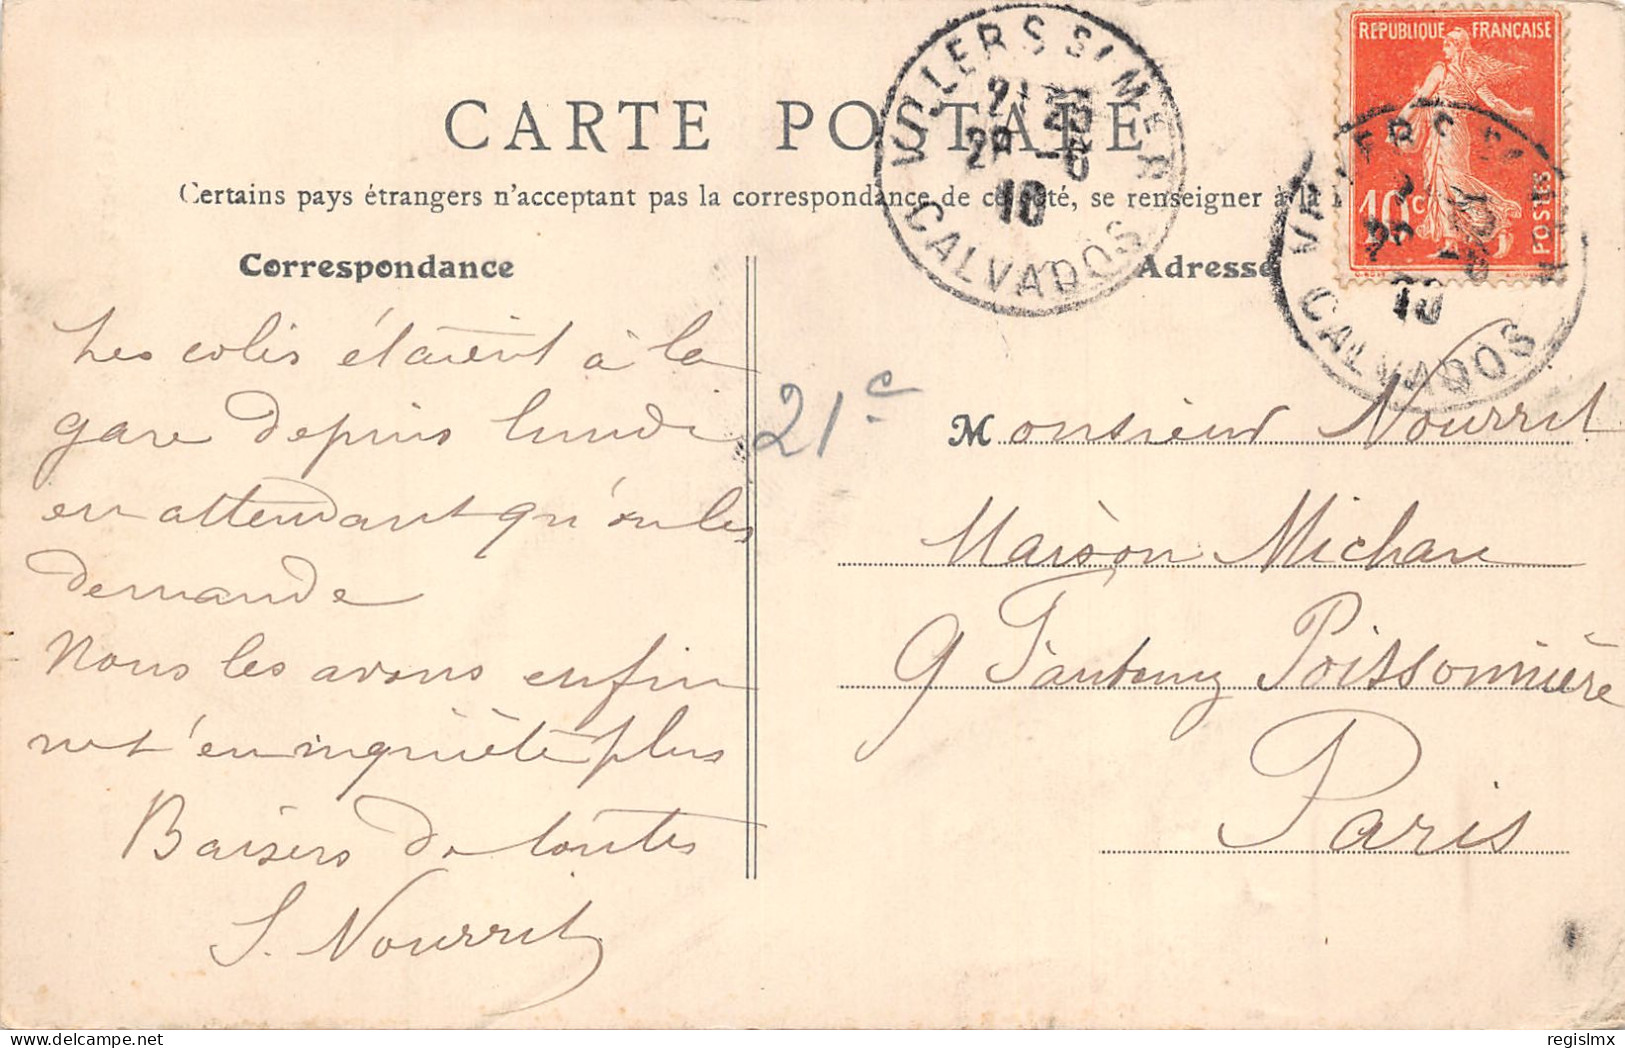 CARTE POSTALE
Certains pays étrangers n'acceptant pas la correspondance de ce côté, se renseigner à la
Correspondance
Adresse
VILLERS S/ MER
21 25
29 -6
10
CALVADOS
REPUBLIQUE FRANÇAISE
10c
POSTES
VILLERS S/ MER
10
CALVADOS
Les colis étaient à la
gare depuis lundi
en attendant qu'on les
demande
Nous les avons enfin
ne t'en inquiète plus
Baisers de toutes
S. Nourrit
21c
Monsieur Nourrit
Maison Michau
9 Faubourg Poissonnière
Paris
regislmx